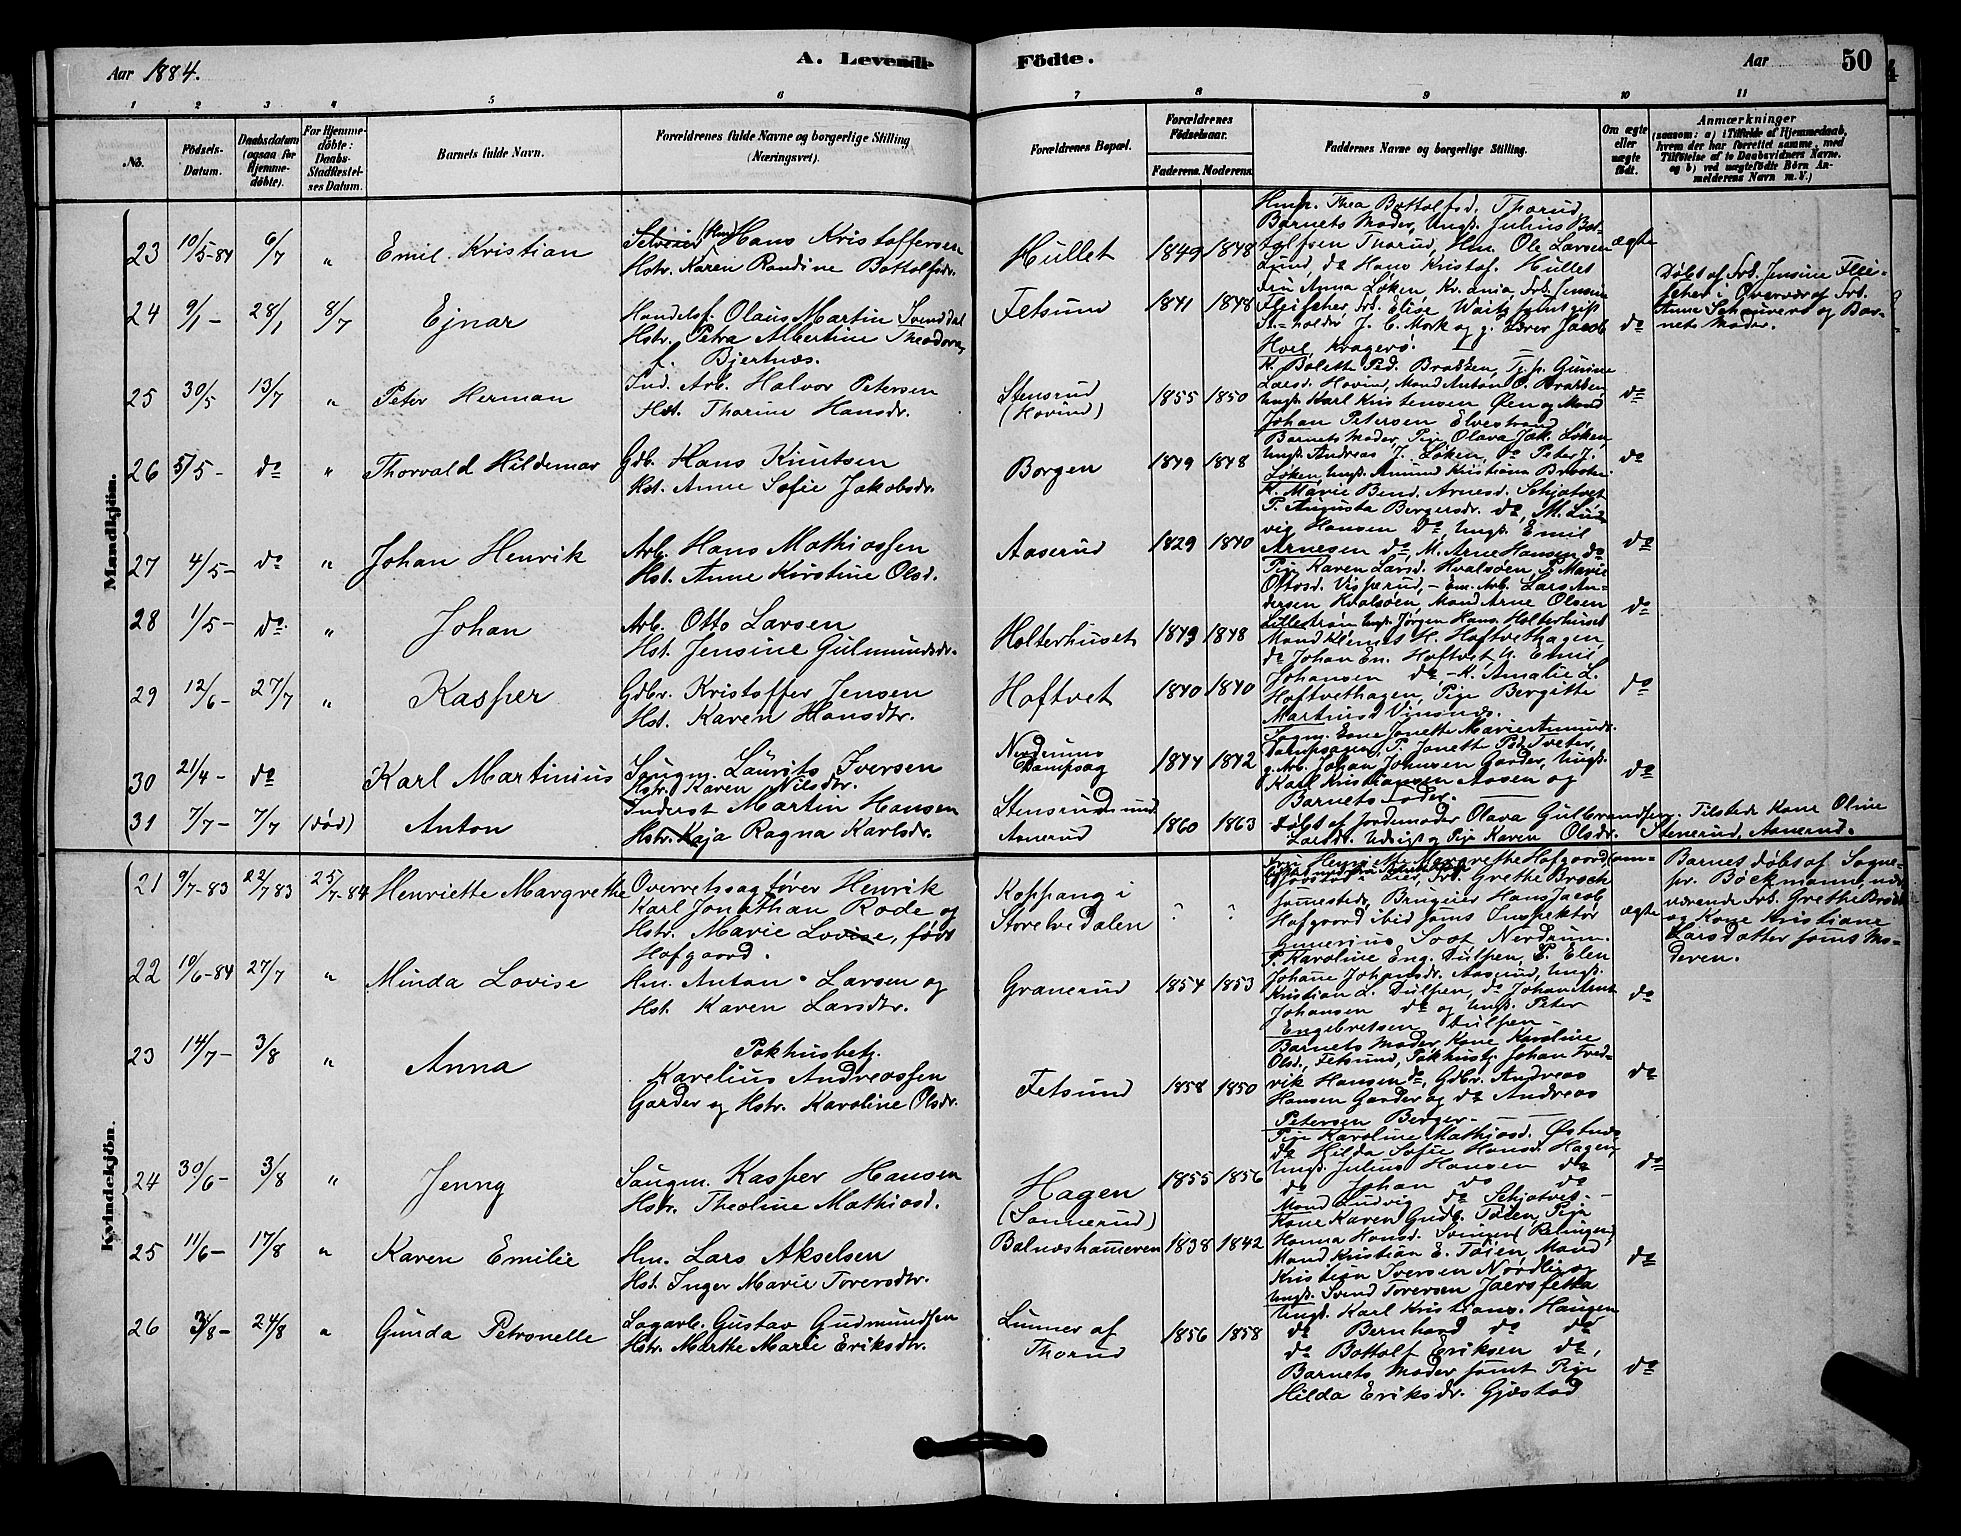 Aar 1884.
A. Levende Fødte.
Aar
50
1 2 3 4 5 6 7 8 9 10 11
No.
Födsels-Datum.
Daabsdatum (ogsaa for Hjemme-döbte).
For Hjemme-döbte: Daabs-Stadfæstel-ses Datum.
Barnets fulde Navn.
Forældrenes fulde Navne og borgerlige Stilling (Næringsvei).
Forældrenes Bopæl.
Forældrenes Födselsaar.
Faderens. Moderens.
Faddernes Navne og borgerlige Stilling.
Om ægte eller uægte født.
Anmærkninger
(saasom: a) i Tilfælde af Hjemmedaab, hvem der har forrettet samme, med Tilføielse af to Daabsvidners Navne. og b) ved uægtefødte Børn Anmelderens Navn m. V.)
Mandkjön.
23 10/5-84 6/7 " Emil Kristian
Selveier Hans Kristoffersen
Hstr. Karen Randine Bottolfsdr.
Hullet 1849 1848
Hmp. Thea Bottolfsd. Thorud,
Barnets Moder, Ungk. Julius Bot-
tolfsen Thorud, Hm. Ole Larsen
Lund, do Hans Kristof. Hullet
ægte
24 9/1- 28/1 8/7 Ejnar
Handelsf. Olaus Martin Svenddal
Hstr. Petra Albertine Theodora,
f. Bjertnæs.
Fetsund 1841 1848
Fru Anna Løken, Kr.ania Frk. Jensine
Fleischer, Frk. Elise Waitz
J. C. Mork og g. Lærer Jacob
Hoel, Kragerø.
do
Døbt af Frk. Jensine Flei-
scher i Overvær af Frk.
Anne og Bar-
nets Moder.
25 30/5 13/7 " Peter Herman
Ind. Arb. Halvor Petersen
Hst. Thorine Hansdr.
Stensrud
(Hovind)
1855 1850
K. Bolette Ped. Brakken, Tjp. Gurine
Larsd. Hovin, Mand Anton O. Brakken,
Ungk. Karl Kristensen Øen og Mand
Johan Petersen Elvestrand
do
26 5/5- do " Thorvald Hildemar
Gdb. Hans Knutsen
Hst. Anne Sofie Jakobsdr.
Borgen 1849 1848
Barnets Moder, Pige Olava Jak. Løken,
Ungk. Andreas J. Løken, do Peter J.
Løken, Ungk. Amund Kristians
do
27 4/5- do " Johan Henrik
Arb. Hans Mathiassen
Hst. Anne Kirstine Olsd.
Aaserud 1829 1840
K. Marie Bend. Arnesd. Schjatvet
P. Augusta Bergersdr. do, M. Lud-
vig Hansen do, Ungk. Emil
Arnesen do, M. Arne Hansen do
do
28 1/5- do " Johan
Arb. Otto Larsen
Hst. Jensine Gulmundsdr.
Holterhuset 1849 1848
Pige Karen Larsd. Hvalsøen, P. Marie
Ottosd. Visperud, - Em. Arb. Lars An-
dersen Kvalsøen, Mand Arne Olsen
Lillestrøm Ungk. Jørgen Hans. Holterhuset
do
29 12/6- 27/7 " Kasper
Gdbr. Kristoffer Jensen
Hst. Karen Hansdtr.
Hoftvet 1840 1840
Mand Klemet H. Hoftvethagen,
do Johan En. Hoftvet, U. Emil
Johansen do, - K. Amalie L.
Hoftvethagen, Pige Bergitte
Martinusd Vinsnes.
do
30 21/4- do Karl Martinius
Saugm. Laurits Iversen
Hstr. Karen Nilsdtr.
Nerdrums
Dampsag
1844 1842
Sagm. Enne Jonette Marie Amunds.
Dampsagen, P. Jonette Ped. Tveter,
g. Arb. Johan Johnsen Garder, Ungk.
Karl Kristiansen Aasen og
Barnets Fader.
do
31 7/7- 7/7 (død) Anton
Inderst Martin Hansen
Hstr. Kaja Ragna Karlsdr.
Stensrudsund
Aanerud
1860 1863
Døbt af Jordemoder Olava Gulbrandsen. Tilstede Kone Oline
Larsdr. Udsigt og Pige Karen Olsdr. Stenerud, Aanerud.
Kvindekjön.
21 9/7-83 22/7 83 25/7-84 Henriette Margrethe
Overretssagfører Henrik
Karl Jonathan Rode og
Hstr. Marie Lovise, født
Hofgaard.
Koppang i
Storelvedalen
? ?
Fru Henriette Margrethe Hofgaard,
Frk. Grethe Broch
sammesteds, Brugseier Hans Jacob
Hofgaard ibid samt Inspektør
Gunerius Soot Nerdrum.
ægte
Barnet døbt af Sogne-
pr. Bøckmann, nær-
værende Frk. Grethe Broch
og Kone Kristiane
Larsdatter samt Mo-
deren.
22 10/6-84 27/7 " Minda Lovise
Hm. Anton Larsen og
Hst. Karen Larsdtr.
Granerud 1854 1853
P. Karoline Eng. Dulpen, P. Elen
Johane Johansdr. Aaserud, Ungk.
Kristian L. Dulpen, do Johan Ant.
Johansen do og Ungk. Peter
Engebretsen Dulpen
do
23 14/7- 3/8 " Anna
Pakhusbetj.
Karelius Andreassen
Garder og Hstr. Karoline Olsdr.
Fetsund 1858 1850
Barnets Moder, Kone Karoline
Olsd., Fetsund, Pakhusbtj. Johan Fred-
rik Hansen do, Gdbr. Andreas
Hansen Garder og do Andreas
Petersen Berger.
do
24 30/6- 3/8 " Jenny
Saugm. Kasper Hansen
Hstr. Theoline Mathiasd.
Hagen
(Sannerud)
1855 1856
Pige Karoline Mathiasd. Østnæs
do Hilda Sofie Hansd. Hagen,
Ungk. Julius Hansen do
do Johan do do
Mand Ludvig do Schjatvet.
do
25 11/6- 17/8 " Karen Emilie
Hm. Lars Akselsen
Hst. Inger Marie Toversdtr.
Balnashameren 1838 1842
Kone Karen Gudb. Tøien, Pige
Hanna Hansd. Svingen, Relingen,
Mand Kristian E. Tøien, Mand
Kristian Iversen Nordli og
Ungk. Svend Toversen Jaersfetta
do
26 3/8- 24/8 " Gunda Petronelle
Sagarb. Gustav Gudmundsen
Hstr. Marthe Marie Eriksdtr.
Lunner af
Thorud
1856 1858
Ungk. Karl Kristians. Haugen
do Bernhard do do
do Bottolf Eriksen do,
Barnets Moder samt Pige
Hilda Eriksdr. Gjøstad
do